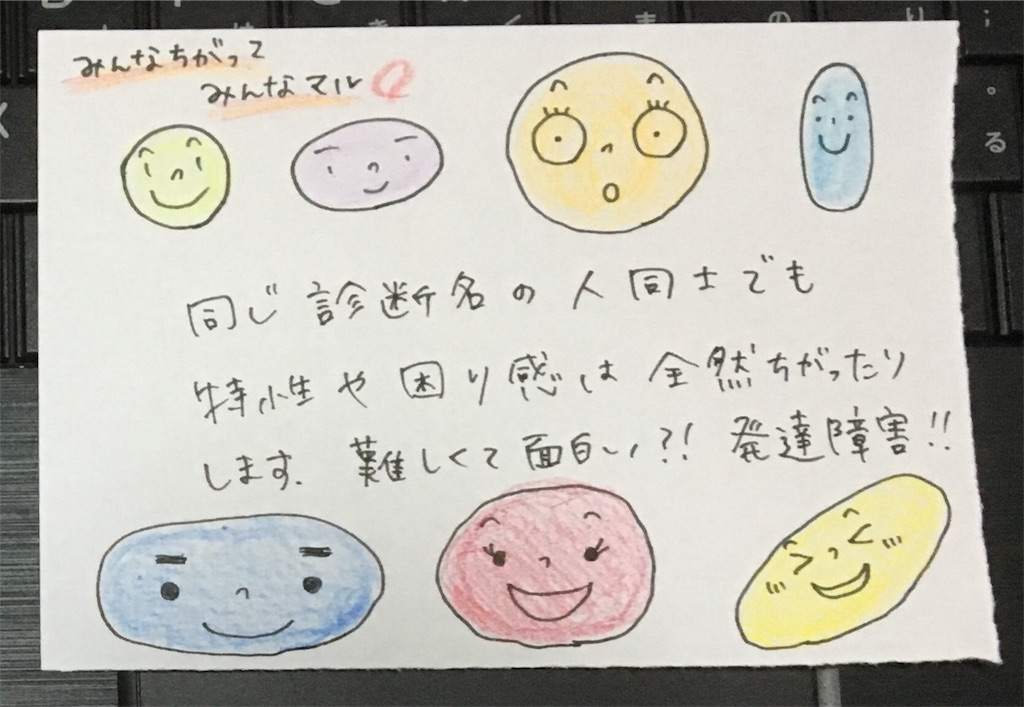 みんなちがって
みんなマル
同じ診断名の人同士でも
特性や困り感は全然ちがったり
します. 難しくて面白い?! 発達障害!!
る